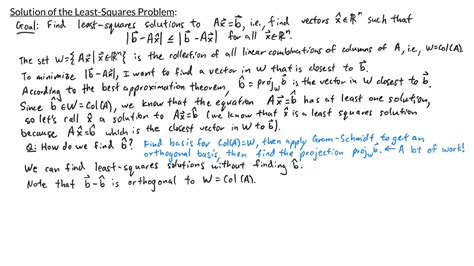 Solution of the Least-Squares Problem:
Goal: Find least-squares solutions to Ax⃗=b⃗, i.e., find vectors x̂∈ℝⁿ such that
|b⃗-Ax̂| ≤ |b⃗-Ax⃗| for all x⃗∈ℝⁿ.
The set W={Ax⃗|x⃗∈ℝⁿ} is the collection of all linear combinations of columns of A, i.e., W=Col(A).
To minimize |b⃗-Ax⃗|, I want to find a vector in W that is closest to b⃗.
According to the best approximation theorem, b̂=proj_W b⃗ is the vector in W closest to b⃗.
Since b̂∈W=Col(A), we know that the equation Ax⃗=b̂ has at least one solution,
so let's call x̂ a solution to Ax⃗=b̂ (we know that x̂ is a least squares solution
because Ax̂=b̂ which is the closest vector in W to b⃗).
Q: How do we find b̂? Find basis for Col(A)=W, then apply Gram-Schmidt to get an
orthogonal basis, then find the projection proj_W b⃗. ← A lot of work!
We can find least-squares solutions without finding b̂.
Note that b⃗-b̂ is orthogonal to W=Col(A).